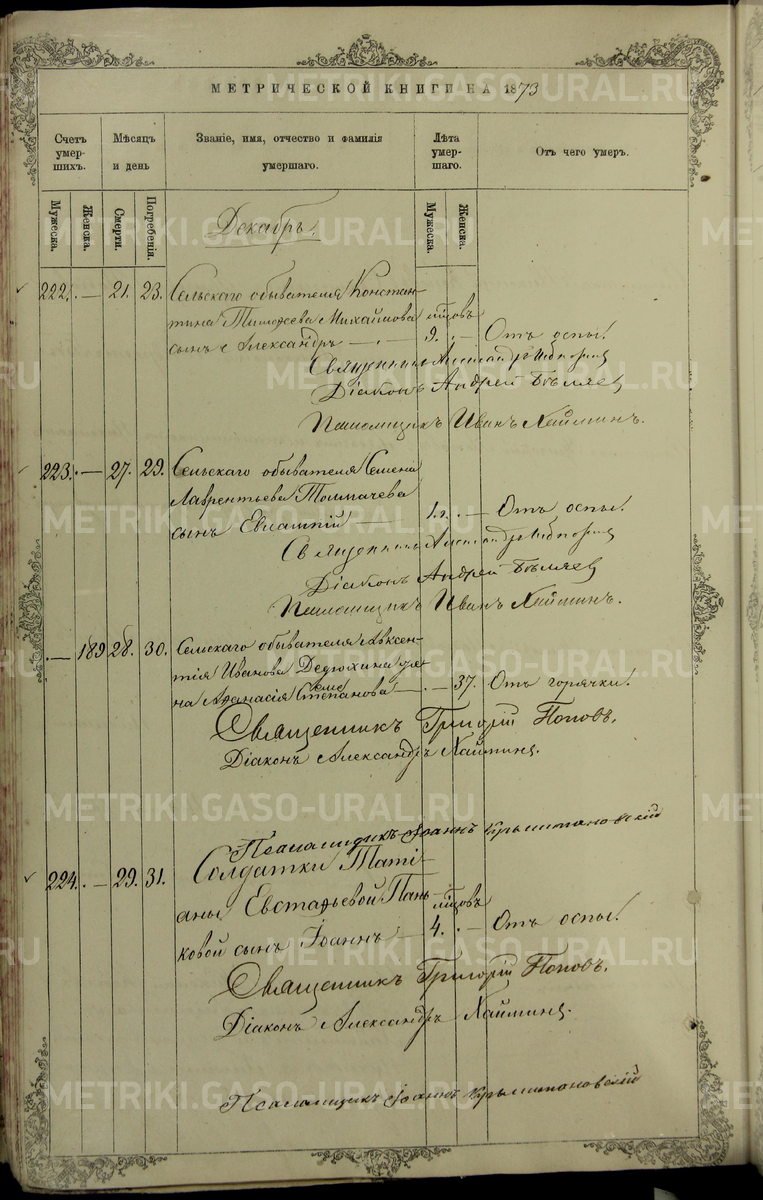 МЕТРИЧЕСКОЙ КНИГИ НА 1873
Счетъ умер-шихъ.
Мѣсяцъ и день
Званіе, имя, отчество и фамилія умершаго.
Лѣта умер-шаго.
Отъ чего умеръ.
Мужеска.
Женска.
Смерти.
Погребенія.
Мужеска.
Женска.
Декабрь.
222. — 21. 23. Сельскаго обывателя Констан-
тина Тимофеева Михайлова мѣсцовъ
сынъ Александръ — 9. — Отъ оспы.
Священникъ
Діаконъ Андрей Бѣляев
Псаломщикъ Иванъ Хайминъ.
223. — 27. 29. Сельскаго обывателя Семена
Лаврентьева Толмачева
сынъ — 1. г. — Отъ оспы.
Священникъ
Діаконъ Андрей Бѣляев
Псаломщикъ Иванъ Хайминъ.
— 189 28. 30. Сельскаго обывателя Авксен-
тія Иванова Дедюхина же-
на Афанасія Степанова — 37. Отъ горячки.
Священникъ Григорій Поповъ.
Діаконъ Александръ Хайминъ.
Псаломщикъ Іоаннъ
224. — 29. 31. Солдатки Таті-
аны Евстафьевой Пань- мѣсцовъ
ковой сынъ Іоаннъ — 4. — Отъ оспы.
Священникъ Григорій Поповъ.
Діаконъ Александръ Хайминъ.
Псаломщикъ Іоаннъ
METRIKI.GASO-URAL.RU